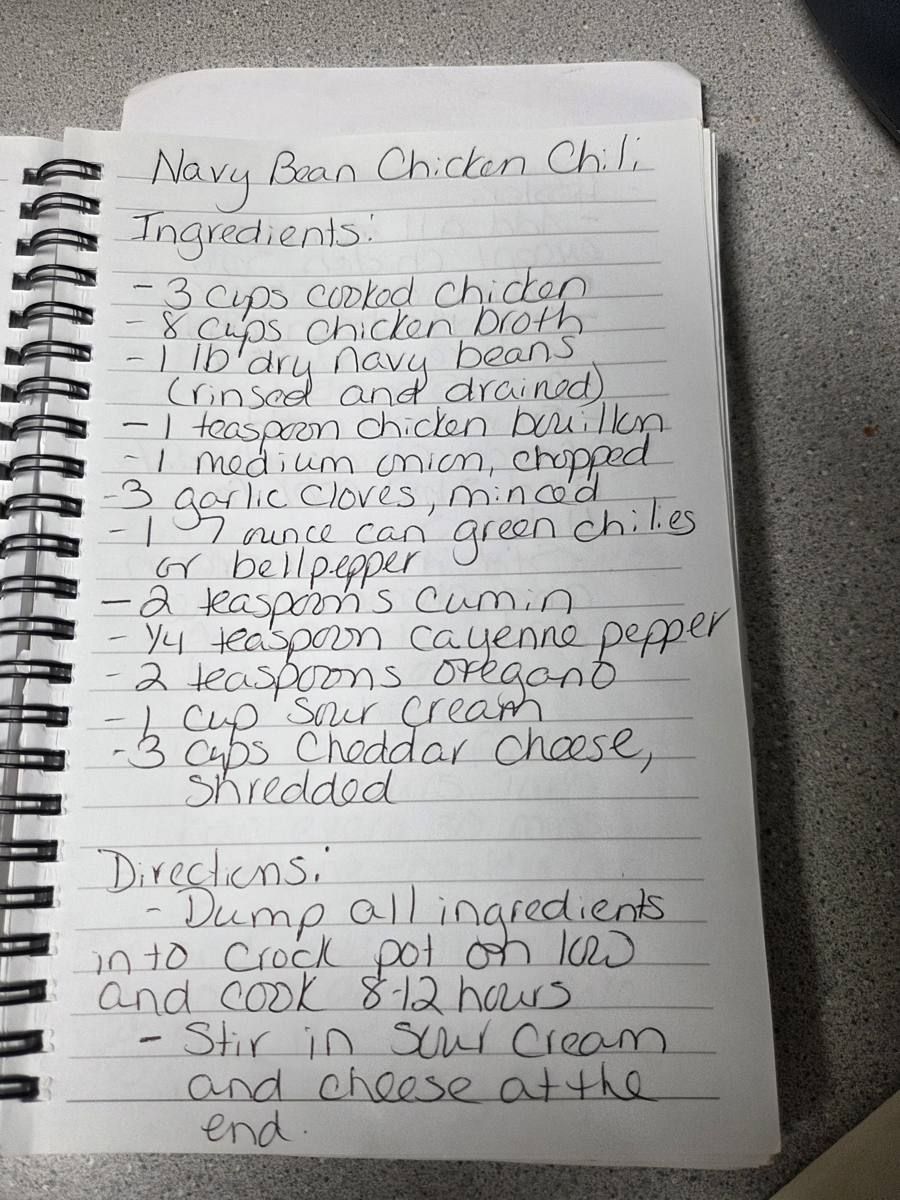 Navy Bean Chicken Chili
Ingredients:
- 3 cups cooked chicken
- 8 cups chicken broth
- 1 lb dry navy beans
(rinsed and drained)
- 1 teaspoon chicken bouillon
- 1 medium onion, chopped
- 3 garlic cloves, minced
- 1 7 ounce can green chilies
or bellpepper
- 2 teaspoons cumin
- 1/4 teaspoon cayenne pepper
- 2 teaspoons oregano
- 1 cup sour cream
- 3 cups Cheddar cheese,
shredded
Directions:
- Dump all ingredients
into crock pot on low
and cook 8-12 hours
- Stir in sour cream
and cheese at the
end.